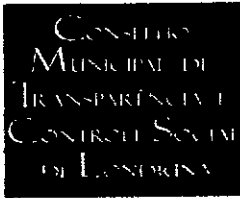 CONSELHO
MUNICIPAL DE
TRANSPARÊNCIA E
CONTROLE SOCIAL
DE LONDRINA